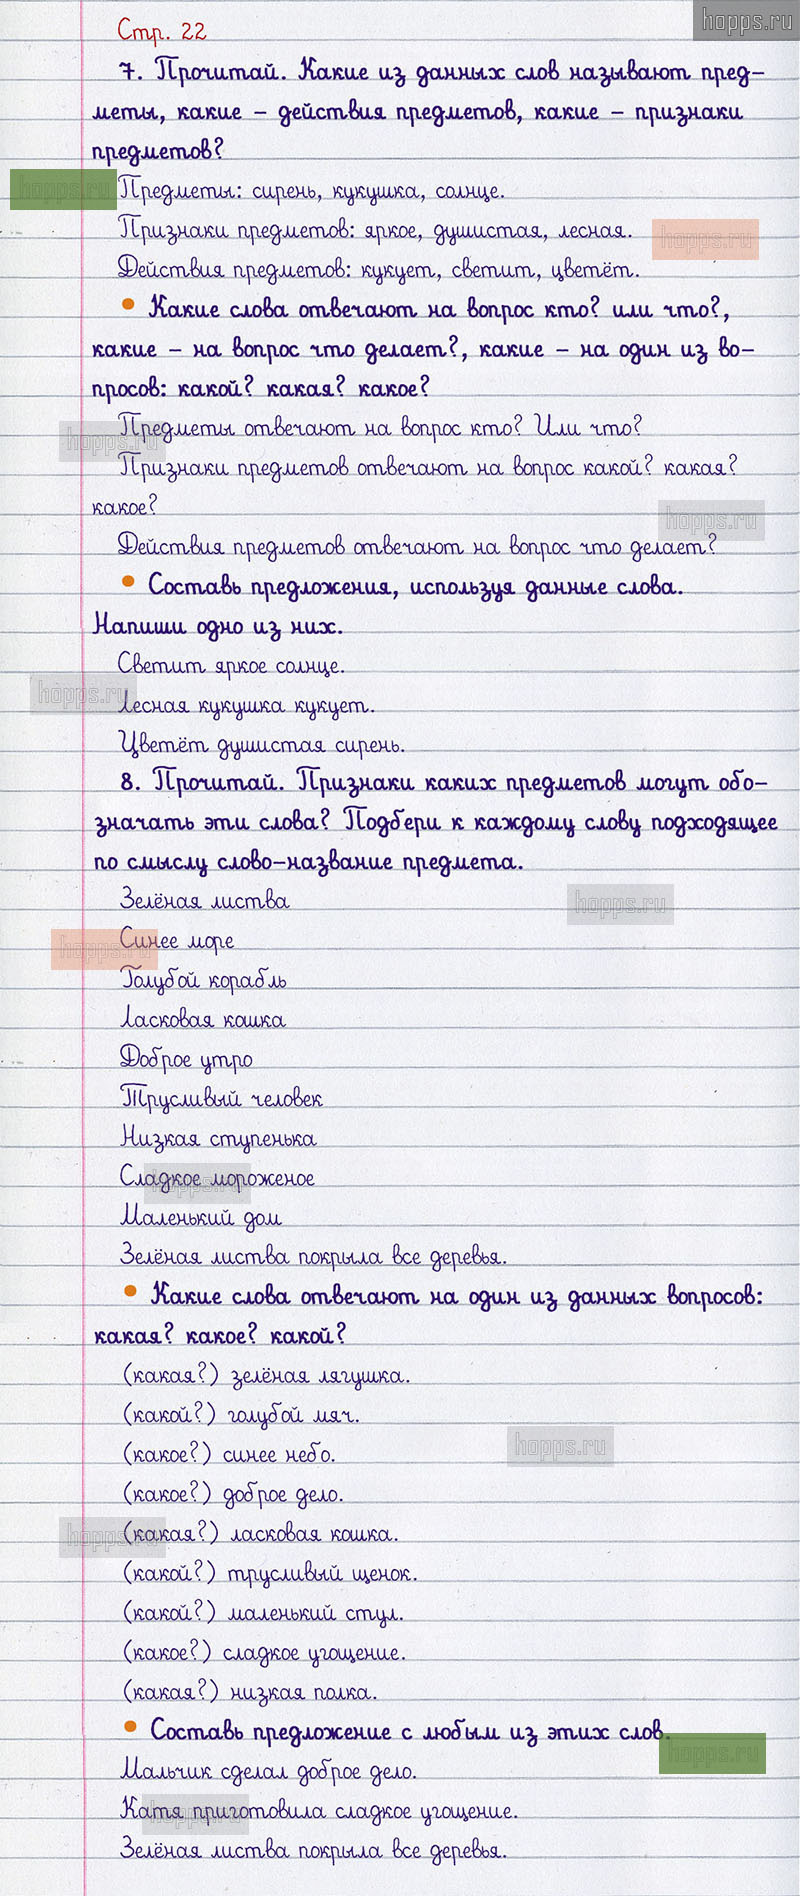 hopps.ru
Стр. 22
7. Прочитай. Какие из данных слов называют пред-
меты, какие – действия предметов, какие – признаки
предметов?
hopps.ru
Предметы: сирень, кукушка, солнце.
Признаки предметов: яркое, душистая, лесная.
hopps.ru
Действия предметов: кукует, светит, цветёт.
• Какие слова отвечают на вопрос кто? или что?,
какие – на вопрос что делает?, какие – на один из во-
просов: какой? какая? какое?
Предметы отвечают на вопрос кто? Или что?
hopps.ru
Признаки предметов отвечают на вопрос какой? какая?
какое?
hopps.ru
Действия предметов отвечают на вопрос что делает?
• Составь предложения, используя данные слова.
Напиши одно из них.
Светит яркое солнце.
hopps.ru
Лесная кукушка кукует.
Цветёт душистая сирень.
8. Прочитай. Признаки каких предметов могут обо-
значать эти слова? Подбери к каждому слову подходящее
по смыслу слово-название предмета.
Зелёная листва
hopps.ru
Синее море
hopps.ru
Голубой корабль
Ласковая кошка
Доброе утро
Трусливый человек
Низкая ступенька
Сладкое мороженое
hopps.ru
Маленький дом
Зелёная листва покрыла все деревья.
• Какие слова отвечают на один из данных вопросов:
какая? какое? какой?
(какая?) зелёная лягушка.
(какой?) голубой мяч.
(какое?) синее небо.
hopps.ru
(какое?) доброе дело.
(какая?) ласковая кошка.
hopps.ru
(какой?) трусливый щенок.
(какой?) маленький стул.
(какое?) сладкое угощение.
(какая?) низкая полка.
• Составь предложение с любым из этих слов.
hopps.ru
Мальчик сделал доброе дело.
Катя приготовила сладкое угощение.
hopps.ru
Зелёная листва покрыла все деревья.